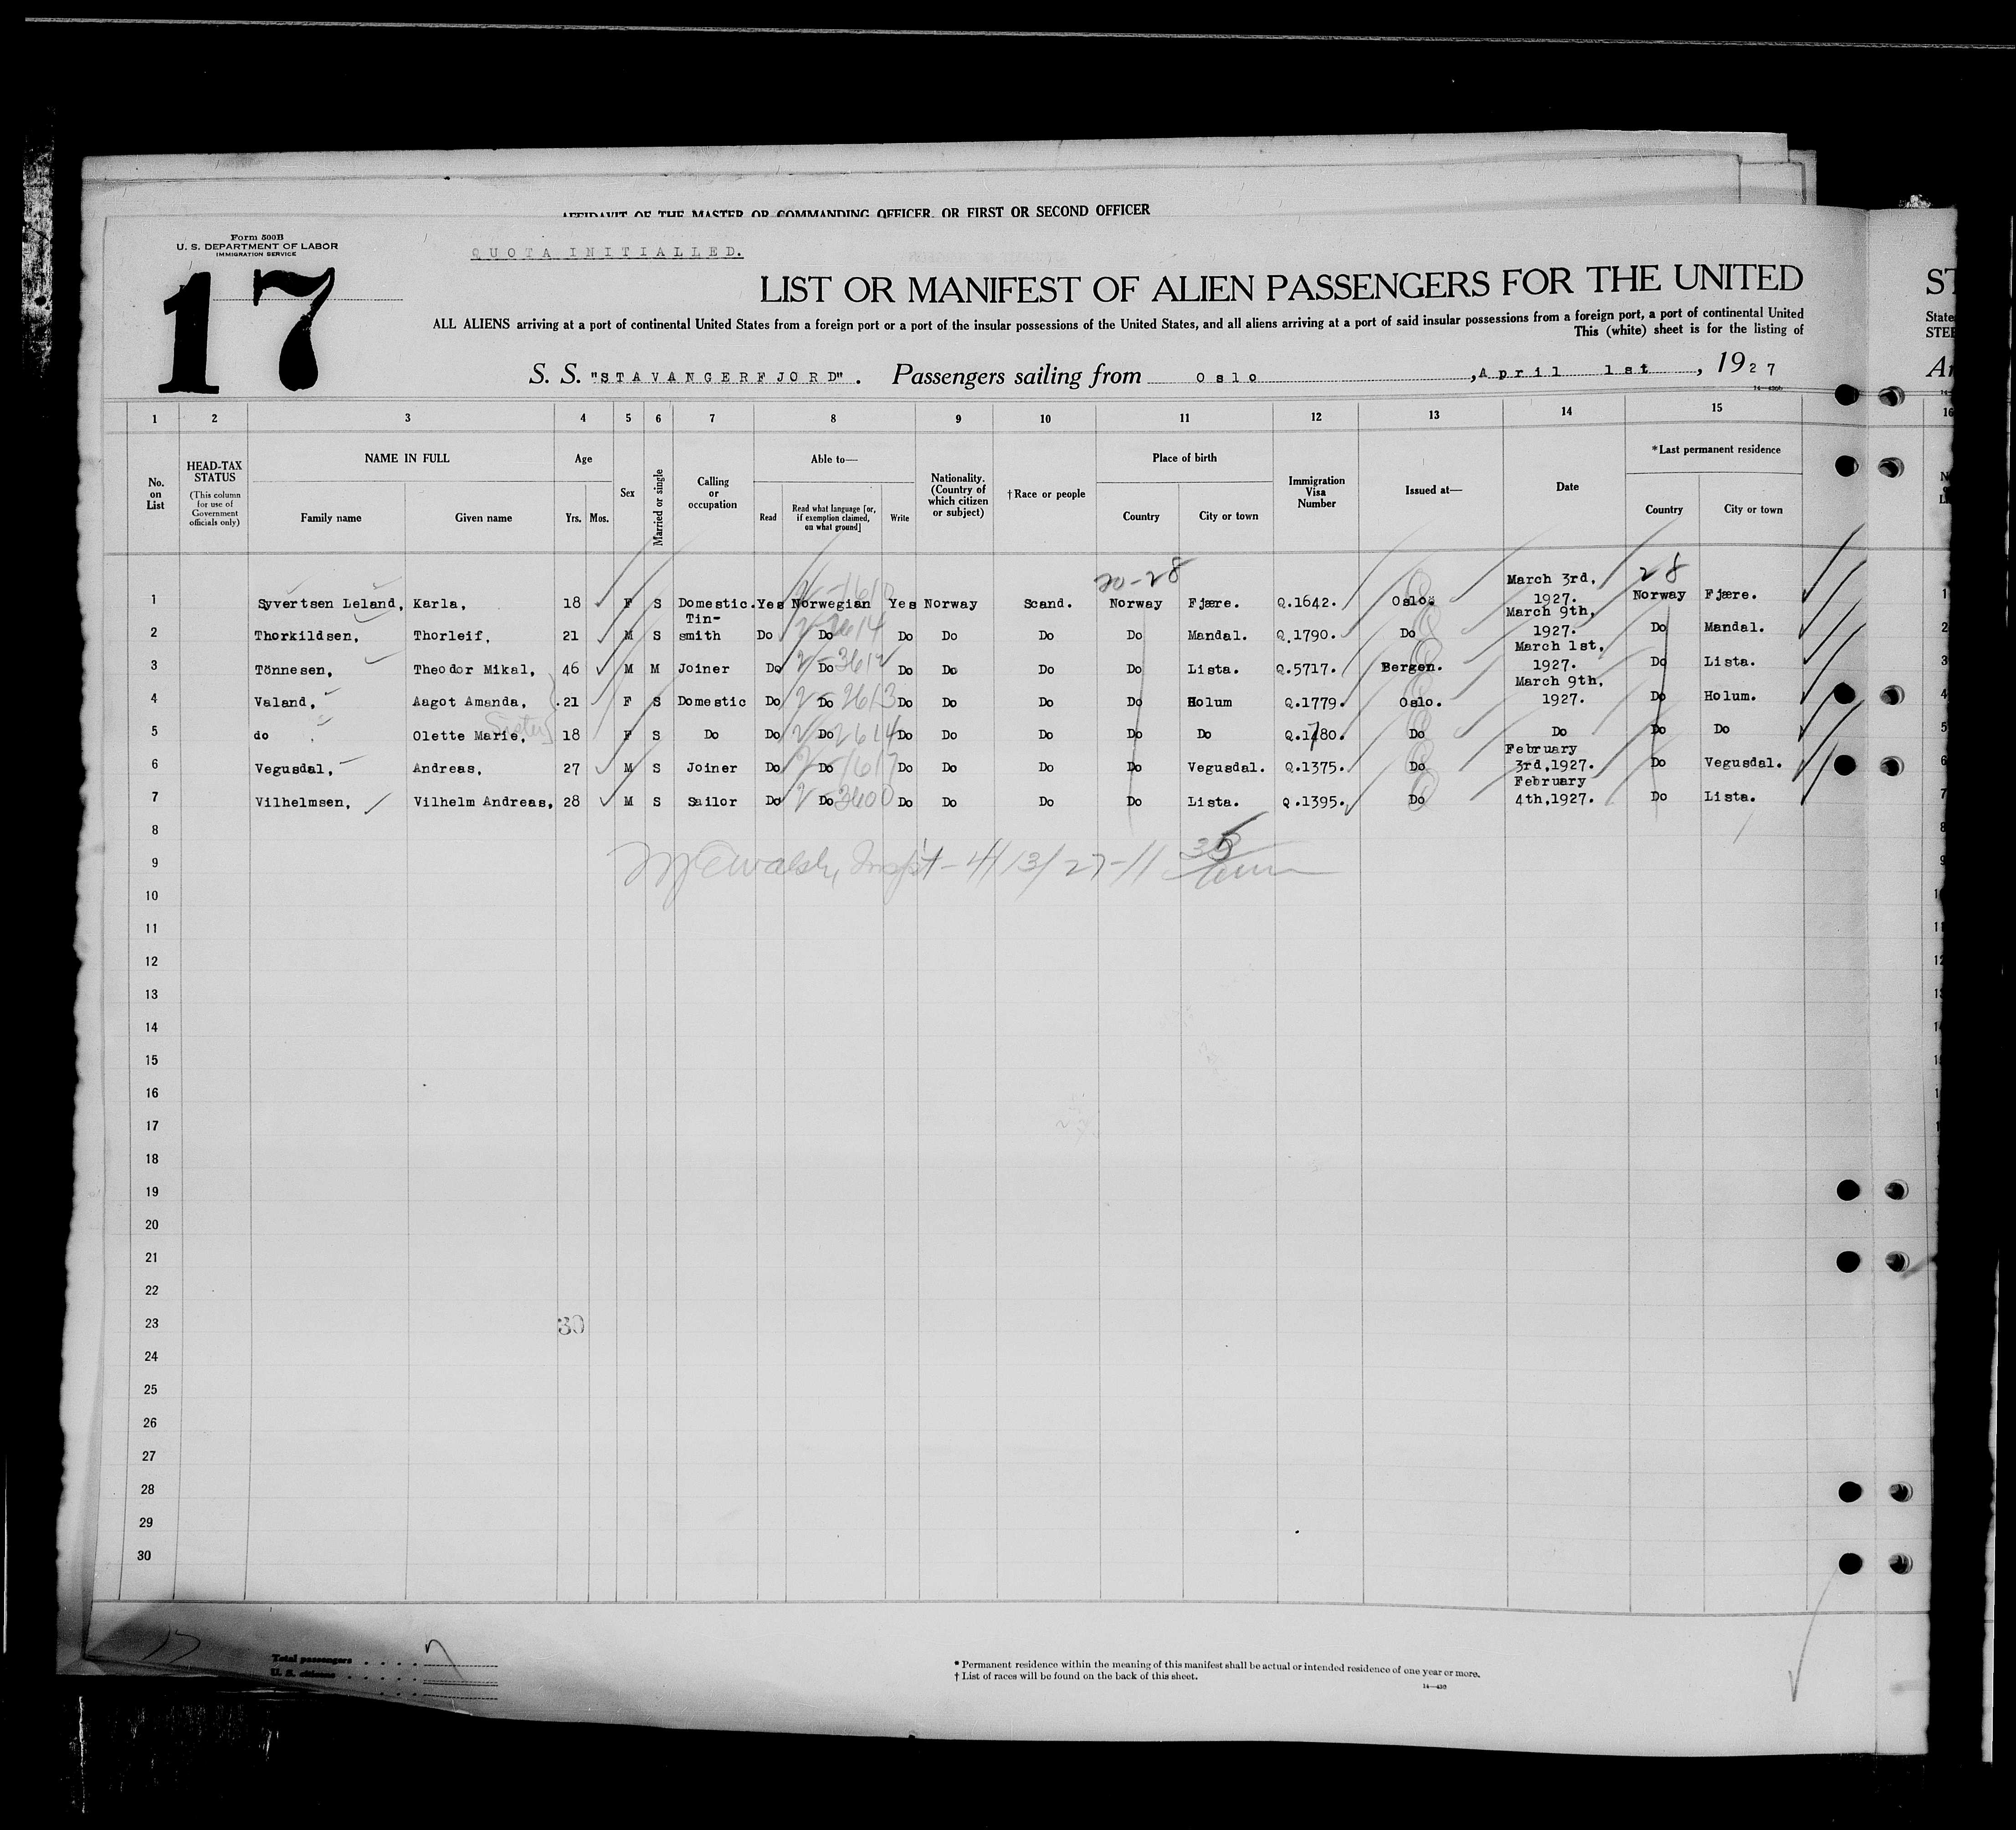 AFFIDAVIT OF THE MASTER OR COMMANDING OFFICER, OR FIRST OR SECOND OFFICER
Form 500B
U. S. DEPARTMENT OF LABOR
IMMIGRATION SERVICE
QUOTA INITIALLED.
17
LIST OR MANIFEST OF ALIEN PASSENGERS FOR THE UNITED
ST
ALL ALIENS arriving at a port of continental United States from a foreign port or a port of the insular possessions of the United States, and all aliens arriving at a port of said insular possessions from a foreign port, a port of continental United
State
This (white) sheet is for the listing of
STEE
S. S. "STAVANGERFJORD". Passengers sailing from Oslo, April 1st, 1927
Ar
1 2 3 4 5 6 7 8 9 10 11 12 13 14 15 16
No. on List
HEAD-TAX STATUS
(This column for use of Government officials only)
NAME IN FULL
Family name Given name
Age
Yrs. Mos.
Sex
Married or single
Calling or occupation
Able to—
Read
Read what language [or, if exemption claimed, on what ground]
Write
Nationality. (Country of which citizen or subject)
† Race or people
Place of birth
Country City or town
Immigration Visa Number
Issued at—
Date
* Last permanent residence
Country City or town
20-28 28
1 Syvertsen Leland, Karla, 18 F S Domestic. Yes Norwegian Yes Norway Scand. Norway Fjære. Q.1642. Oslo. March 3rd, 1927. Norway Fjære. 1
2 Thorkildsen, Thorleif, 21 M S Tin-smith Do Do Do Do Do Do Mandal. Q.1790. Do March 9th, 1927. Do Mandal. 2
3 Tönnesen, Theodor Mikal, 46 M M Joiner Do 2-3612 Do Do Do Do Do Lista. Q.5717. Bergen. March 1st, 1927. Do Lista. 3
4 Valand, Aagot Amanda, 21 F S Domestic Do 2-2613 Do Do Do Do Do Holum Q.1779. Oslo. March 9th, 1927. Do Holum. 4
5 do Olette Marie, Sister 18 F S Do Do 2-2614 Do Do Do Do Do Do Q.1780. Do Do Do Do 5
6 Vegusdal, Andreas, 27 M S Joiner Do 2-1617 Do Do Do Do Do Vegusdal. Q.1375. Do February 3rd,1927. Do Vegusdal. 6
7 Vilhelmsen, Vilhelm Andreas, 28 M S Sailor Do 2-3600 Do Do Do Do Do Lista. Q.1395. Do February 4th,1927. Do Lista. 7
8
9 Walsh, Inspt - 4/13/27 - 11
10
11
12
13
14
15
16
17
18
19
20
21
22
23 30
24
25
26
27
28
29
30
17
Total passengers 7
U. S. citizens
* Permanent residence within the meaning of this manifest shall be actual or intended residence of one year or more.
† List of races will be found on the back of this sheet.